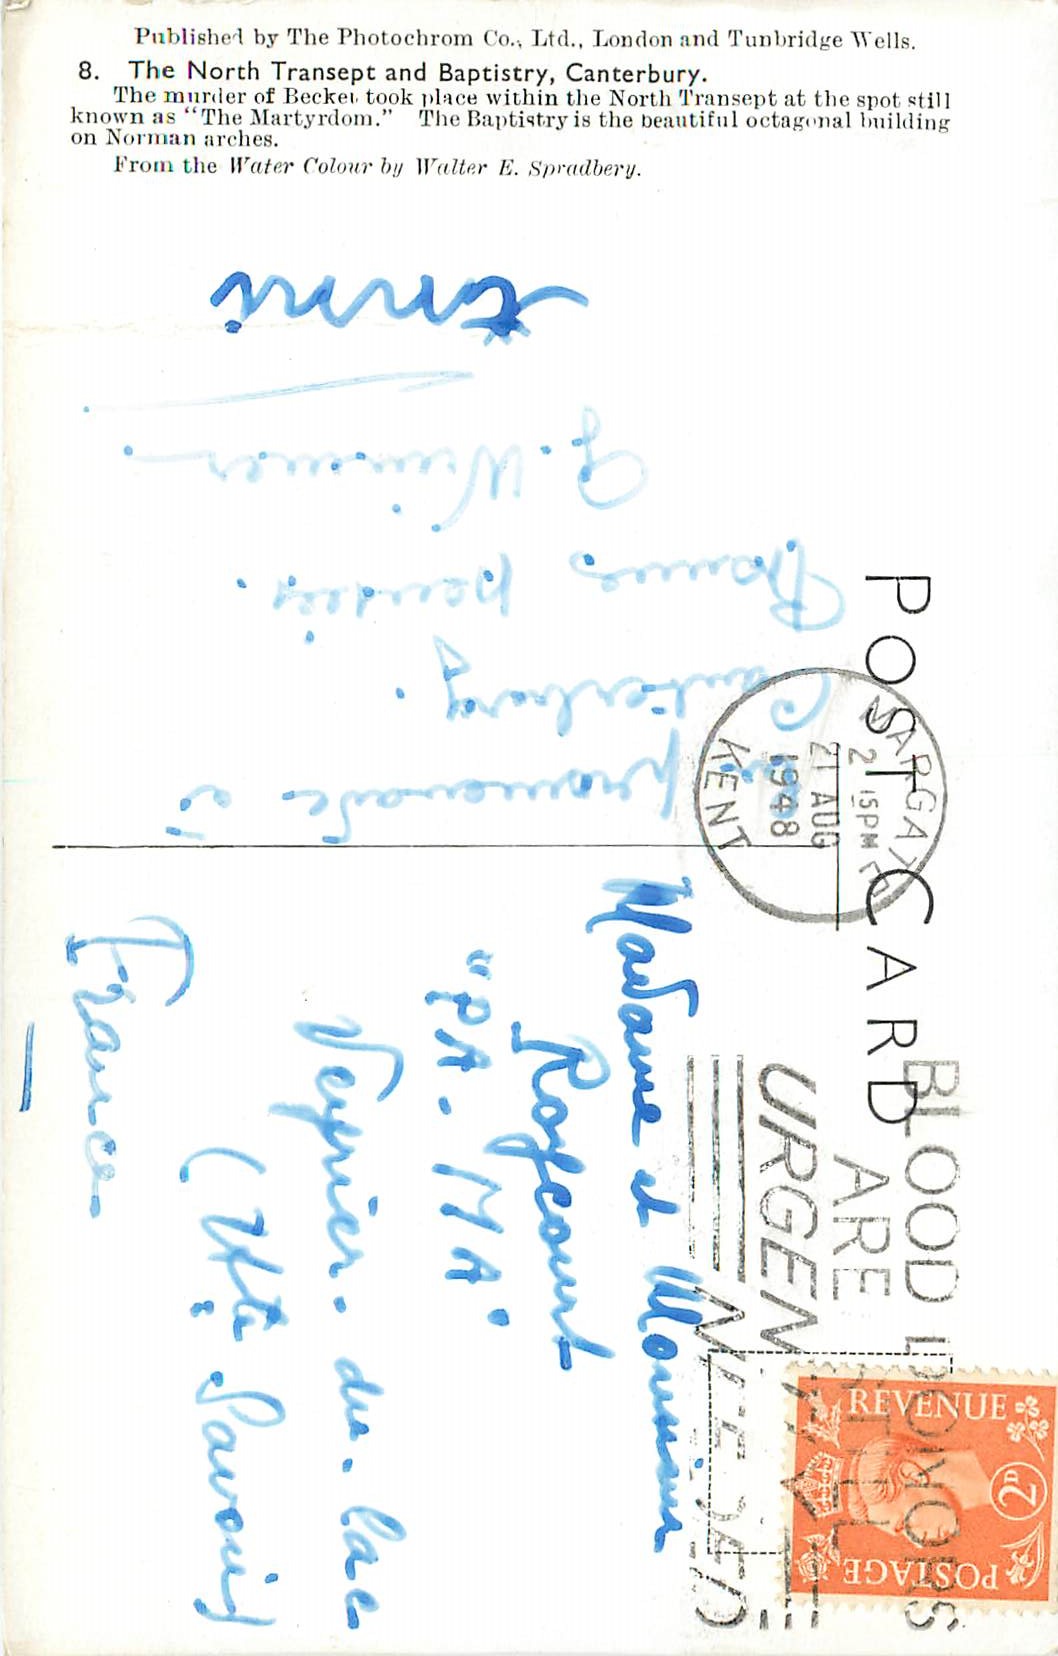 Published by The Photochrom Co., Ltd., London and Tunbridge Wells.
8. The North Transept and Baptistry, Canterbury.
The murder of Becket took place within the North Transept at the spot still
known as "The Martyrdom." The Baptistry is the beautiful octagonal building
on Norman arches.
From the Water Colour by Walter E. Spradbery.
POST CARD
promenade à
Canterbury.
Bonnes pensées.
MARGATE
2 15 PM
21 AUG
1948
KENT
BLOOD DONORS
ARE STILL
URGENTLY
NEEDED
REVENUE
2D
POSTAGE
Madame et Monsieur
"PA. MA"
Veyrier-du-Lac
(Hte Savoie)
France